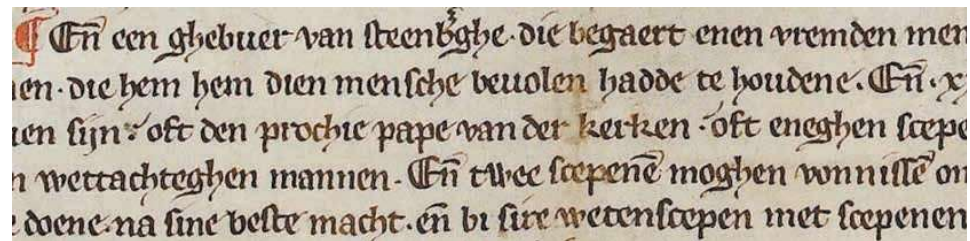 ¶ En̄ een ghebuer van steenb᷑ghe · die begaert enen vremden men
en · die hem hem dien mensche beuolen hadde te houdene . En̄ · x
en sijn : oft den prochie pape van der kerken · oft eneghen scepe
n wettachteghen mannen · En̄ twee scepenē moghen vonnissē on
e doene · na sine beste macht · en̄ bi sire wetenscepen met scepenen